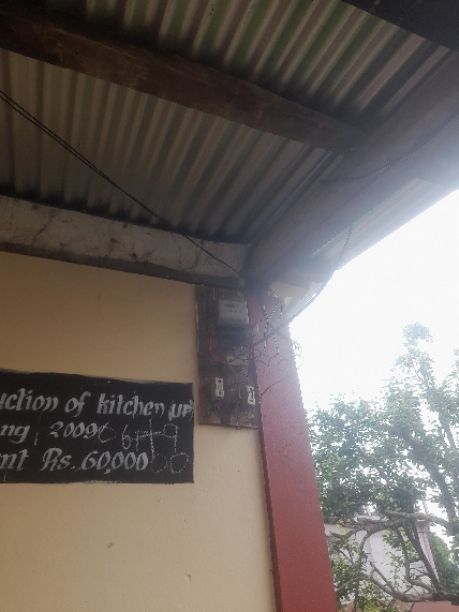 uction of kitchen un
ng 2009 6179
nt Rs. 60,000